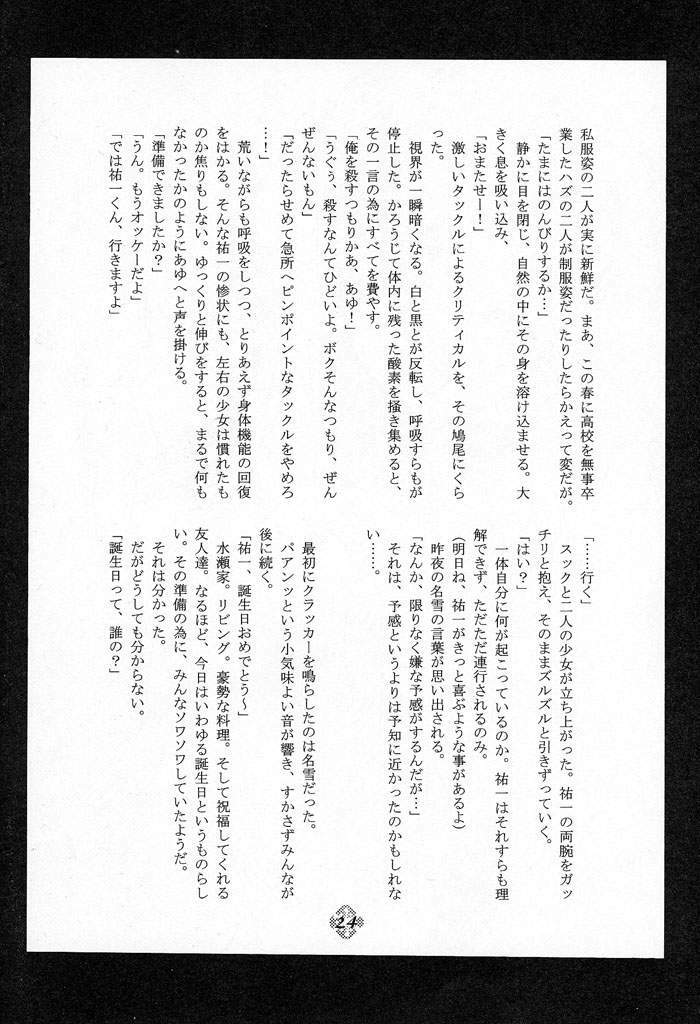 私服姿の二人が実に新鮮だ。まあ、この春に高校を無事卒
業したハズの二人が制服姿だったりしたらかえって変だが。
「たまにはのんびりするか…」
静かに目を閉じ、自然の中にその身を溶け込ませる。大
きく息を吸い込み、
「おまたせー！」
激しいタックルによるクリティカルを、その鳩尾にくら
った。
視界が一瞬暗くなる。白と黒とが反転し、呼吸すらもが
停止した。かろうじて体内に残った酸素を掻き集めると、
その一言の為にすべてを費やす。
「俺を殺すつもりかあ、あゆ！」
「うぐぅ、殺すなんてひどいよ。ボクそんなつもり、ぜん
ぜんないもん」
「だったらせめて急所へピンポイントなタックルをやめろ
…！」
荒いながらも呼吸をしつつ、とりあえず身体機能の回復
をはかる。そんな祐一の惨状にも、左右の少女は慣れたも
のか焦りもしない。ゆっくりと伸びをすると、まるで何も
なかったかのようにあゆへと声を掛ける。
「準備できましたか？」
「うん。もうオッケーだよ」
「では祐一くん、行きますよ」
「……行く」
スックと二人の少女が立ち上がった。祐一の両腕をガッ
チリと抱え、そのままズルズルと引きずっていく。
「はい？」
一体自分に何が起こっているのか。祐一はそれすらも理
解できず、ただただ連行されるのみ。
（明日ね、祐一がきっと喜ぶような事があるよ）
昨夜の名雪の言葉が思い出される。
「なんか、限りなく嫌な予感がするんだが…」
それは、予感というよりは予知に近かったのかもしれな
い……。
最初にクラッカーを鳴らしたのは名雪だった。
パアンッという小気味よい音が響き、すかさずみんなが
後に続く。
「祐一、誕生日おめでとう～」
水瀬家。リビング。豪勢な料理。そして祝福してくれる
友人達。なるほど、今日はいわゆる誕生日というものらし
い。その準備の為に、みんなソワソワしていたようだ。
それは分かった。
だがどうしても分からない。
「誕生日って、誰の？」
24